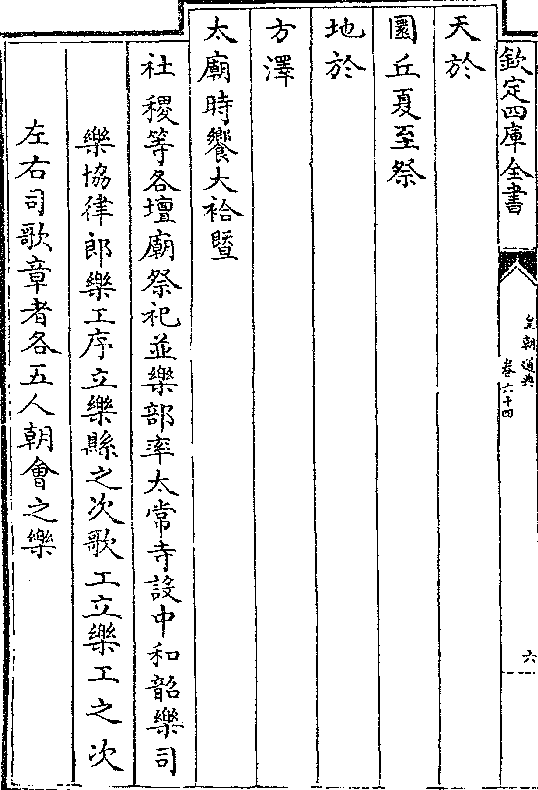 欽定四庫全書
皇朝通典
卷六十四
六
天於
圜丘夏至祭
地於
方澤
太廟時饗大祫暨
社稷等各壇廟祭祀並樂部率太常寺設中和韶樂司
樂協律郎樂工序立樂縣之次歌工立樂工之次
左右司歌章者各五人朝會之樂